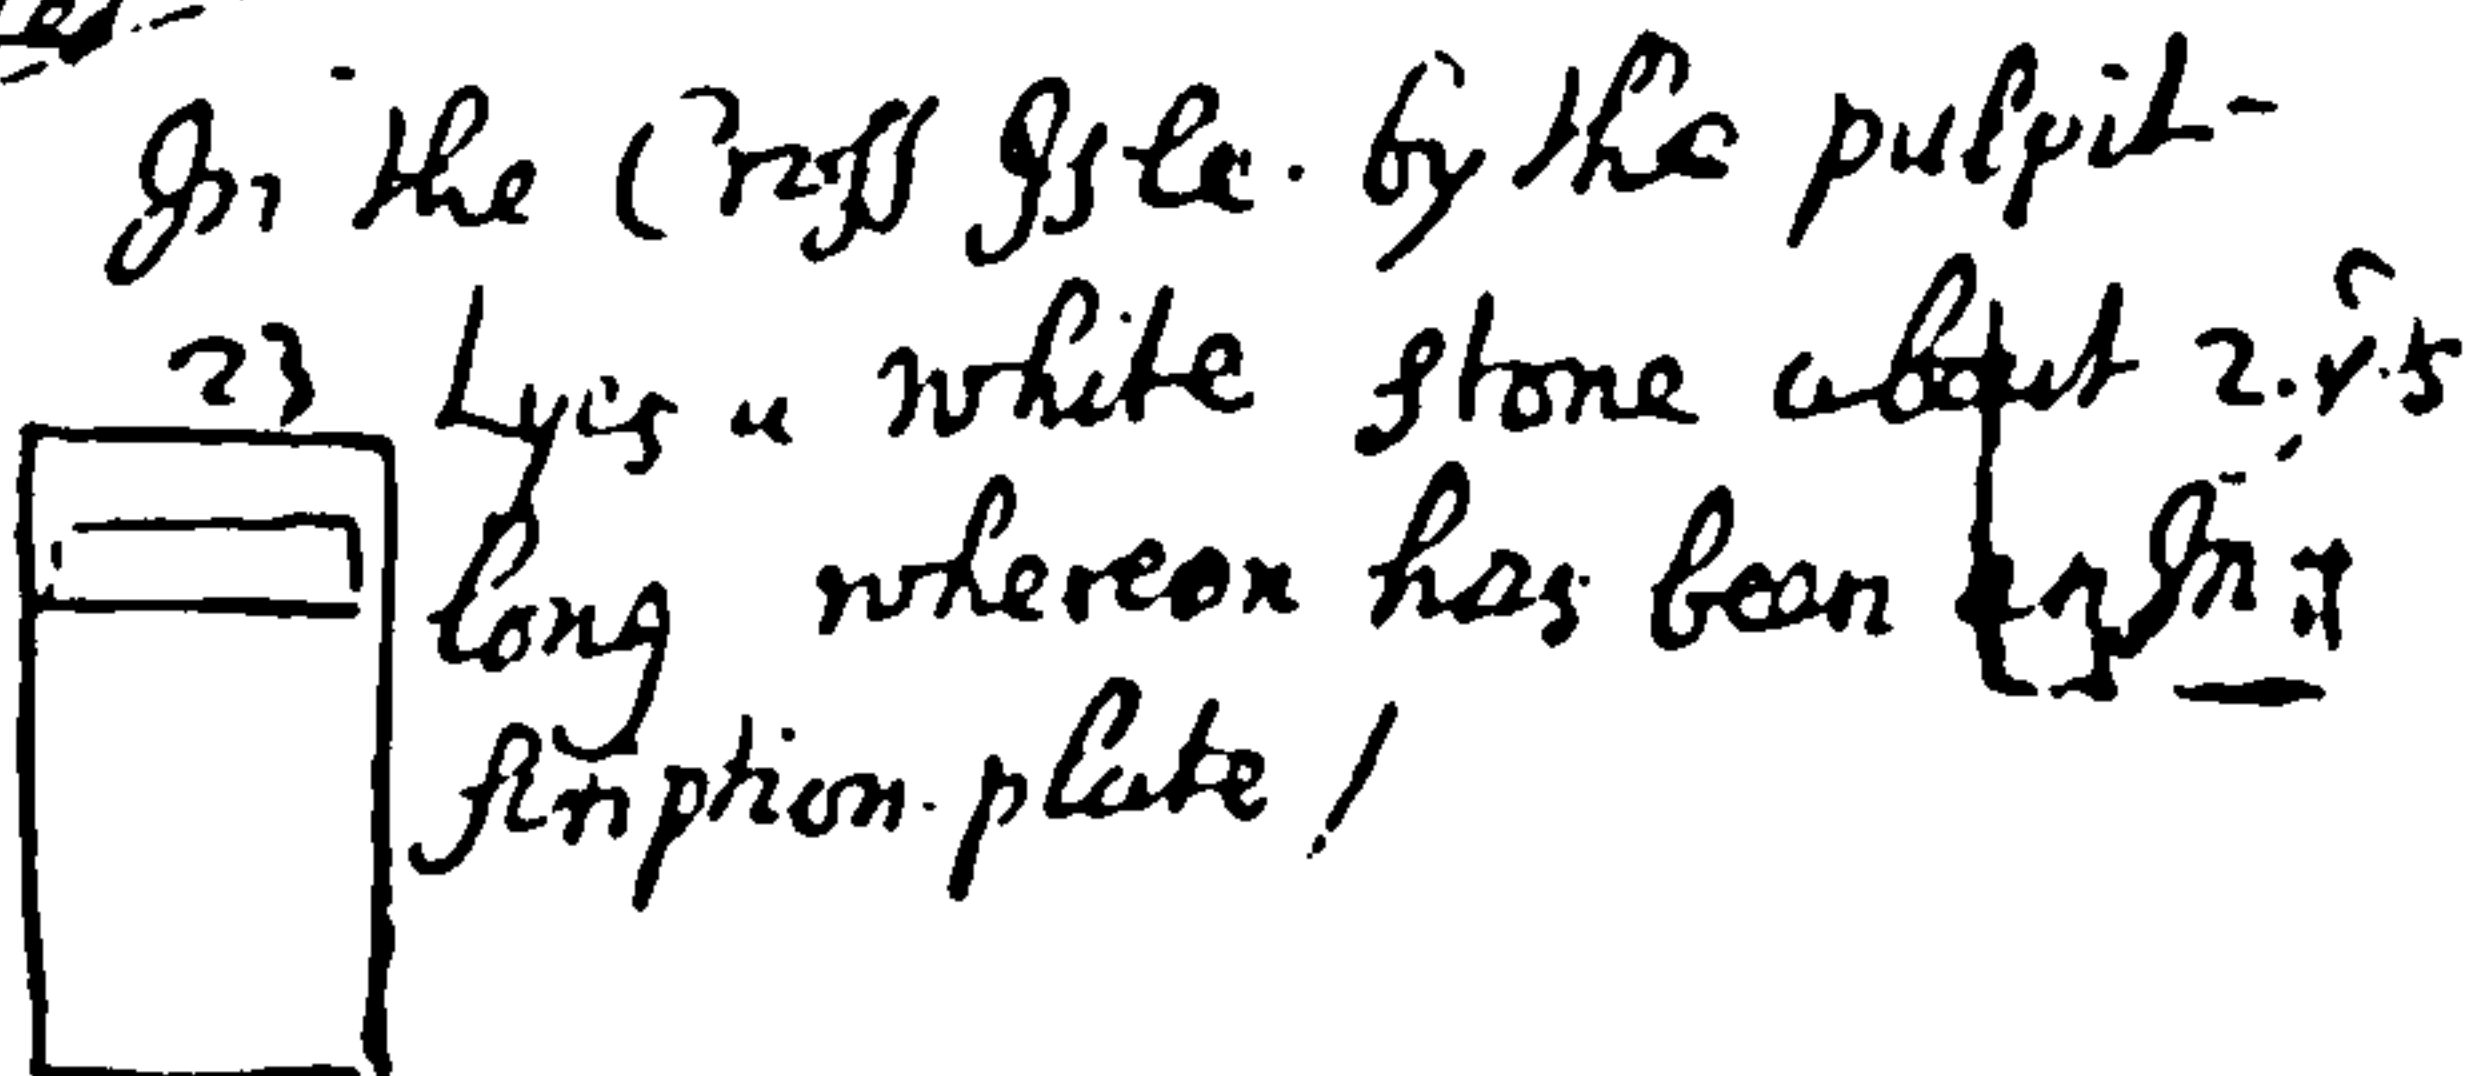 In the Cross Isle. by the pulpit-
23 Lyes a white stone about 2.
long whereon has been an In
scription. plate /